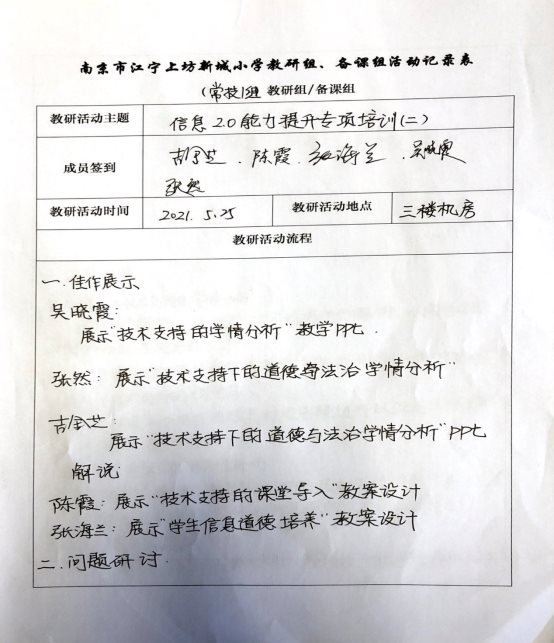 南京市江宁上坊新城小学教研组、备课组活动记录表
(常技1组 教研组/备课组
教研活动主题 信息2.0能力提升专项培训(二)
成员签到 吉金芝、陈霞、张海兰、吴晓霞
张然
教研活动时间 2021.5.25 教研活动地点 三楼机房
教研活动流程
一.佳作展示
吴晓霞:
展示"技术支持的学情分析"教学PPt.
张然:展示"技术支持下的道德与法治学情分析"
吉金芝:
展示"技术支持下的道德与法治学情分析"PPt
解说
陈霞:展示"技术支持的课堂导入"教案设计
张海兰:展示"学生信息道德培养"教案设计
二.问题研讨.